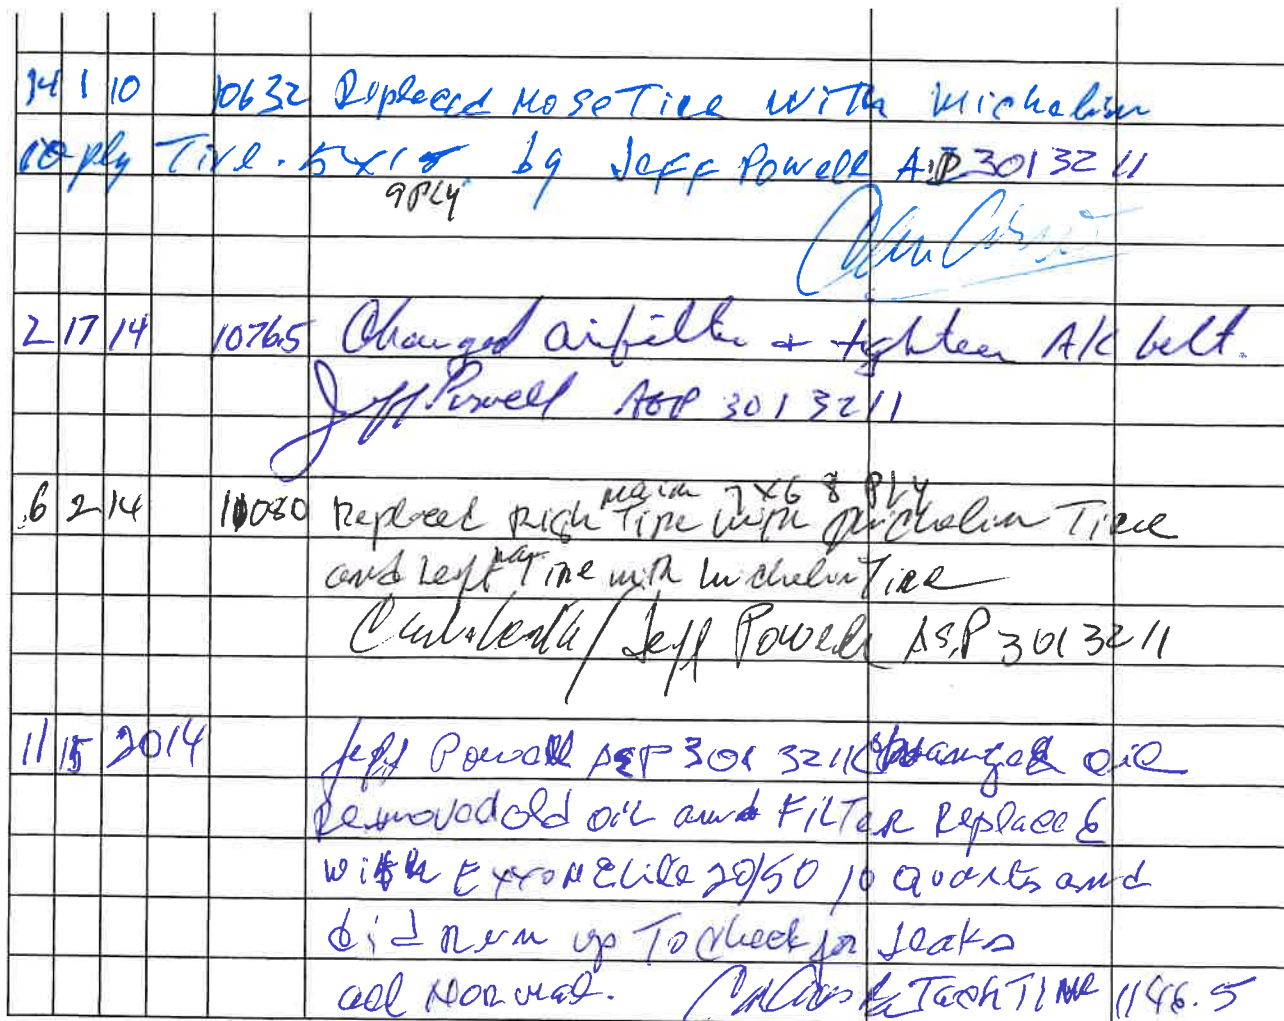 14 1 10 10632 Replaced Nose Tire With Michelin
10 ply Tire. 5x15 by Jeff Powell A&P 3013211
9PLY
2 17 14 1076.5 Changed airfilter + tighten A/C belt.
Jeff Powell A&P 3013211
main 7x6 8 PLY
6 2 14 11080 Replaced Righ Tire with Michelin Tire
and Left Tire with Michelin Tire
Jeff Powell A&P 3013211
11 15 2014 Jeff Powell A&P 3013211 Changed oil
Removed old oil and FILTER Replaced
with Exxon Elite 20/50 10 quarts and
did run up To check for leaks
all Normal. Tach TIME 1146.5